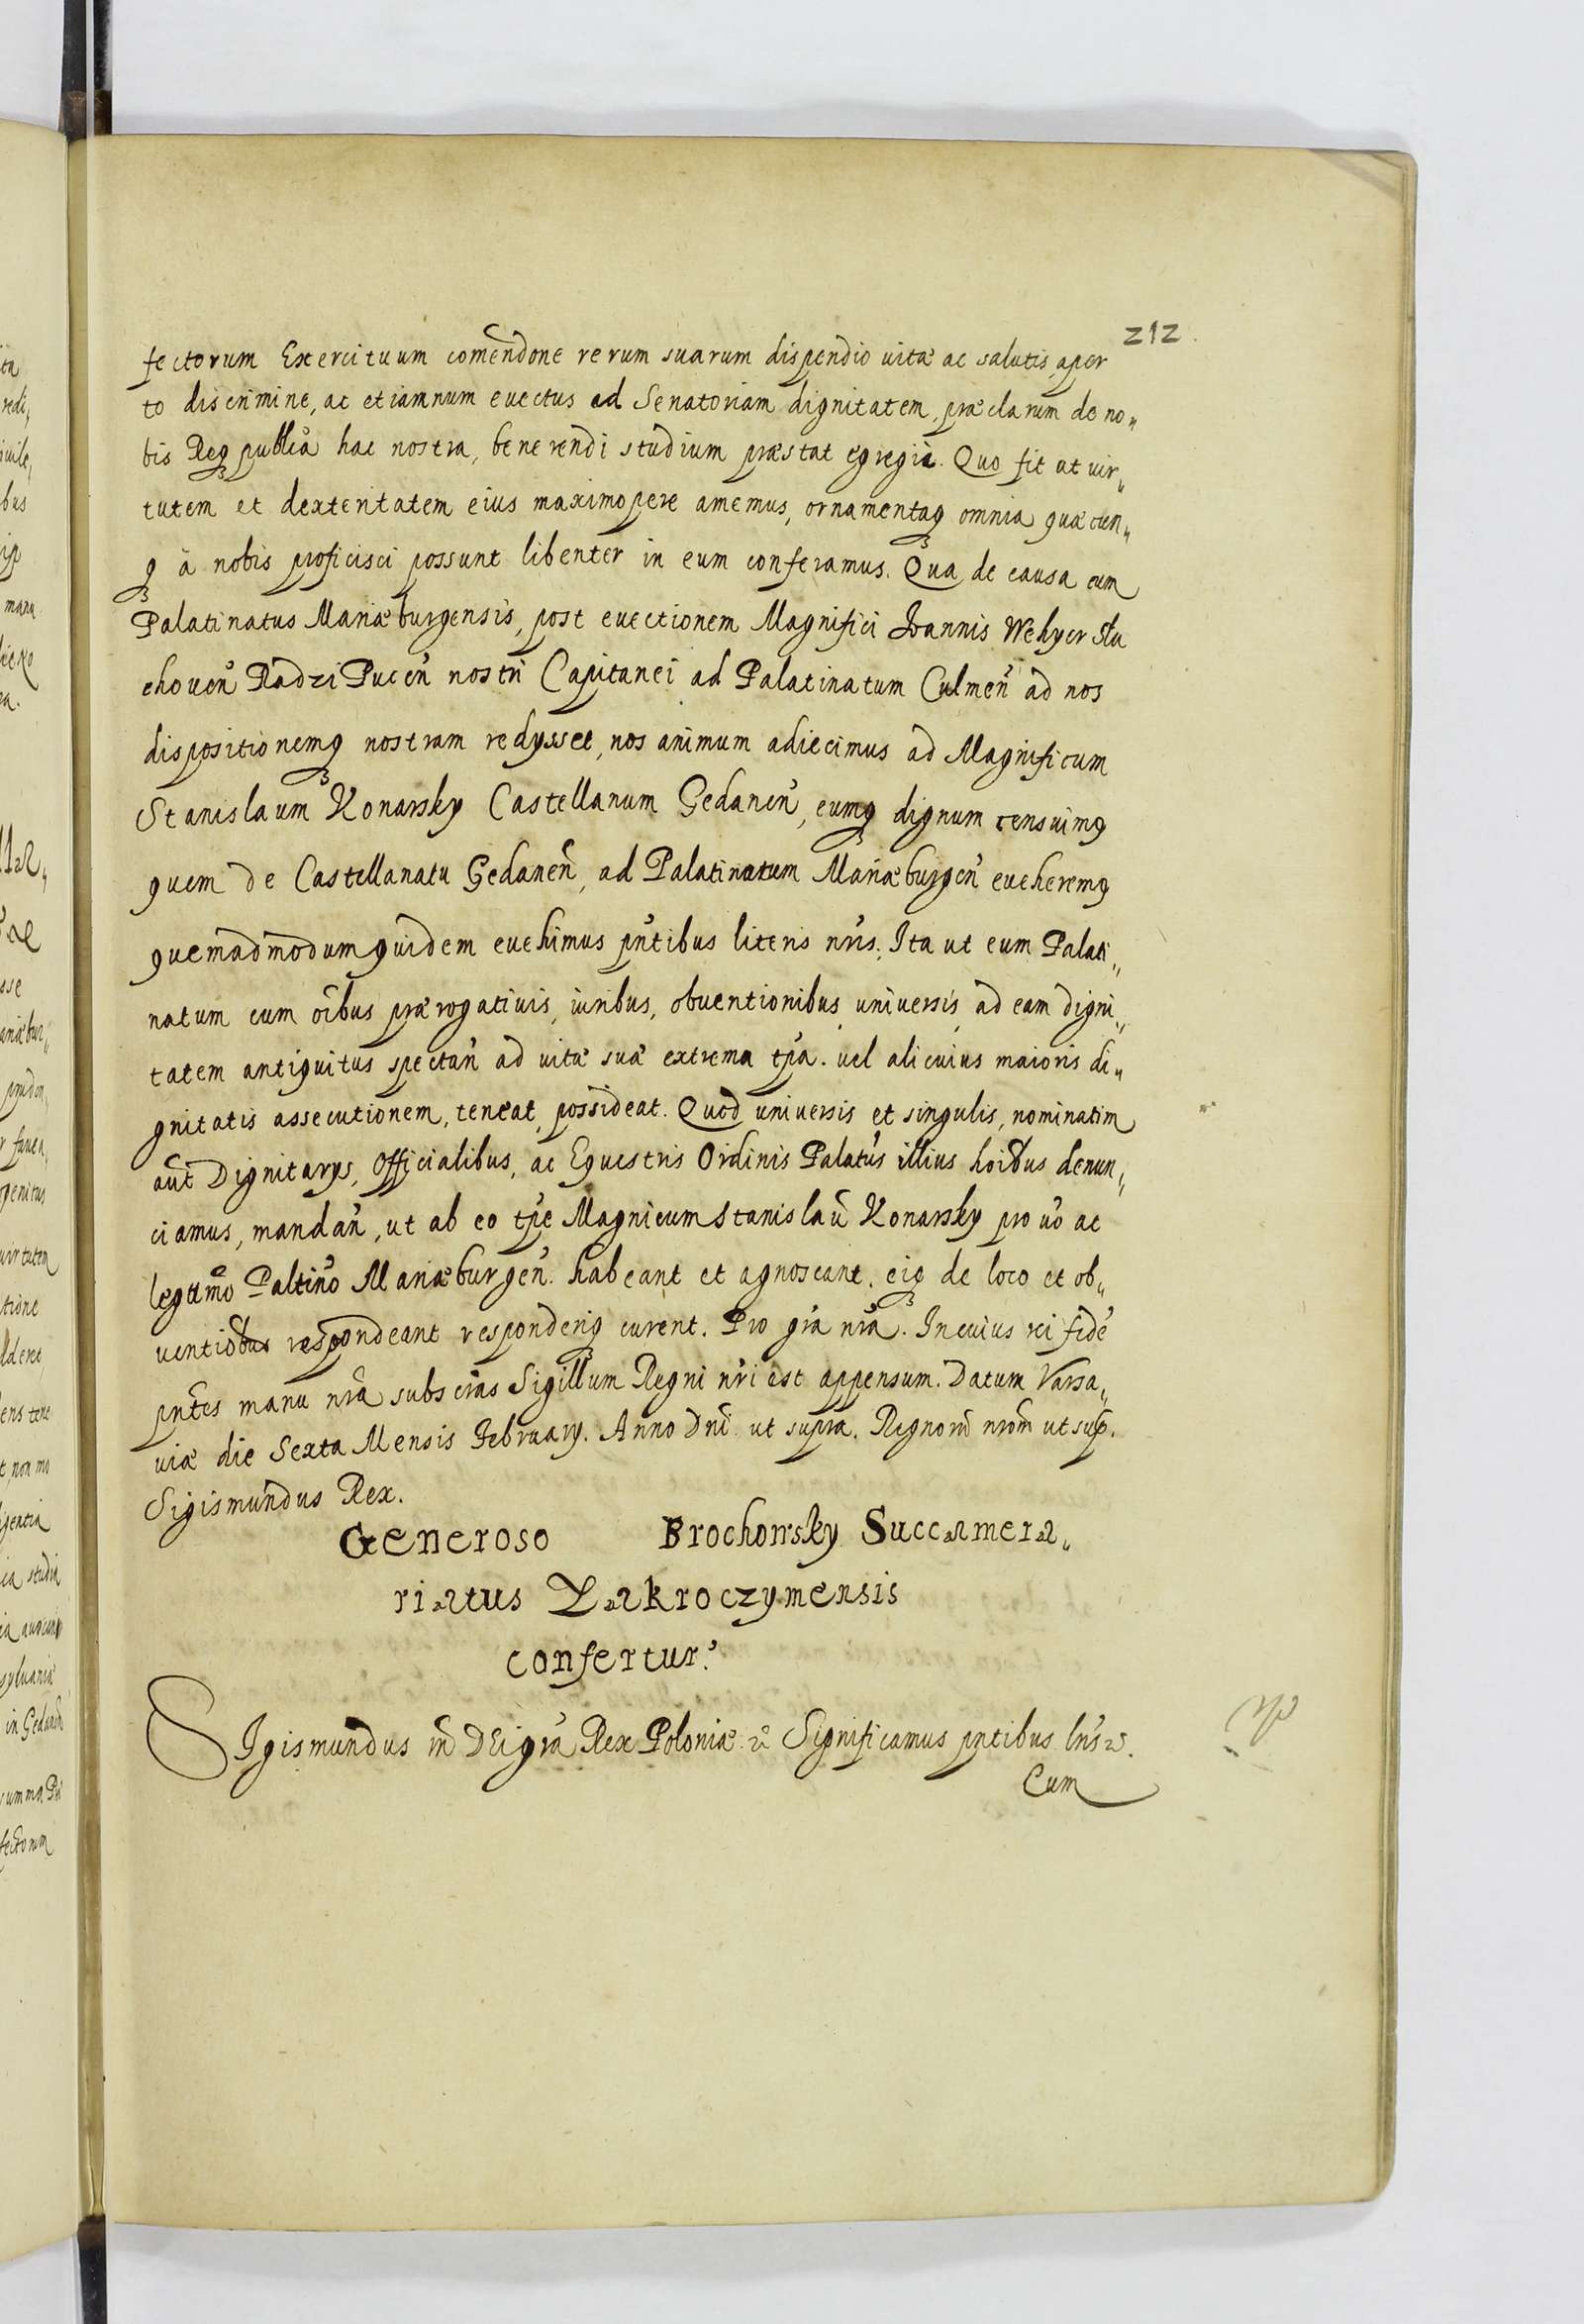 212.
fectorum Exercituum comendone rerum suarum dispendio uitæ ac salutis, aper
to discrimine, ac etiamnum euectus ad Senatoriam dignitatem, præclarum de no„
bis Reqꝫ publica hac nostra, bene rendi studium præstat egregiè. Quo fit ut uir„
tutem et dexteritatem eius maximopere amemus, ornamentaqꝫ omnia quæcun„
qꝫ à nobis proficisci possunt libenter in eum conferamus. Qua de causa cum
Palatinatus Mariæburgensis, post euectionem Magnifici Joannis Wehyer Slu
chouen̄ Radzi Pucen̄ nostri Capitanei ad Palatinatum Culmen̄ ad nos
dispositionemqꝫ nostram redysset, nos animum adiecimus ad Magnificum
Stanislaum Konarsky Castellanum Gedanen̄, eumqꝫ dignum censuimꝰ
quem de Castellanatu Gedanen̄, ad Palatinatum Mariæburgen̄ eueheremꝰ
quemadmodum quidem euehimus pn̄tibus literis nr̄is. Ita ut eum Palati„
natum cum oībus prærogatiuis, iuribus, obuentionibus uniuersis, ad eam digni„
tatem antiquitus spectan̄ ad uitæ suæ extrema tp̄a. uel alicuius maioris di„
gnitatis assecutionem, teneat, possideat. Quod uniuersis et singulis, nominatim
aut̄ Dignitarys, Officialibus, ac Equestris Ordinis Palatūs illius hoībus denun„
ciamus, mandan̄, ut ab eo tp̄e Magnicum Stanislaū Konarsky pro uō ac
legitimō Paltinō Mariæburgen̄. habeant et agnoscant. eiqꝫ de loco et ob„
uentiōbus respondeant responderiqꝫ curent. Pro grā nrā. In cuius rei fidē
pn̄tes manu nrā subscrās Sigillum Regni nr̄i est appensum. Datum Varsa„
uiæ die Sexta Mensis February. Anno Dn̄i ut supra. Regnorū nrōm ut sup.
Sigismundus Rex.
Generoso Brochowsky Succamera„
riatus Zakroczymensis
confertur.
SIgismundus IIĪ DEi grā Rex Poloniæ &c̄ Significamus pn̄tibus lr̄is &c.
Cum